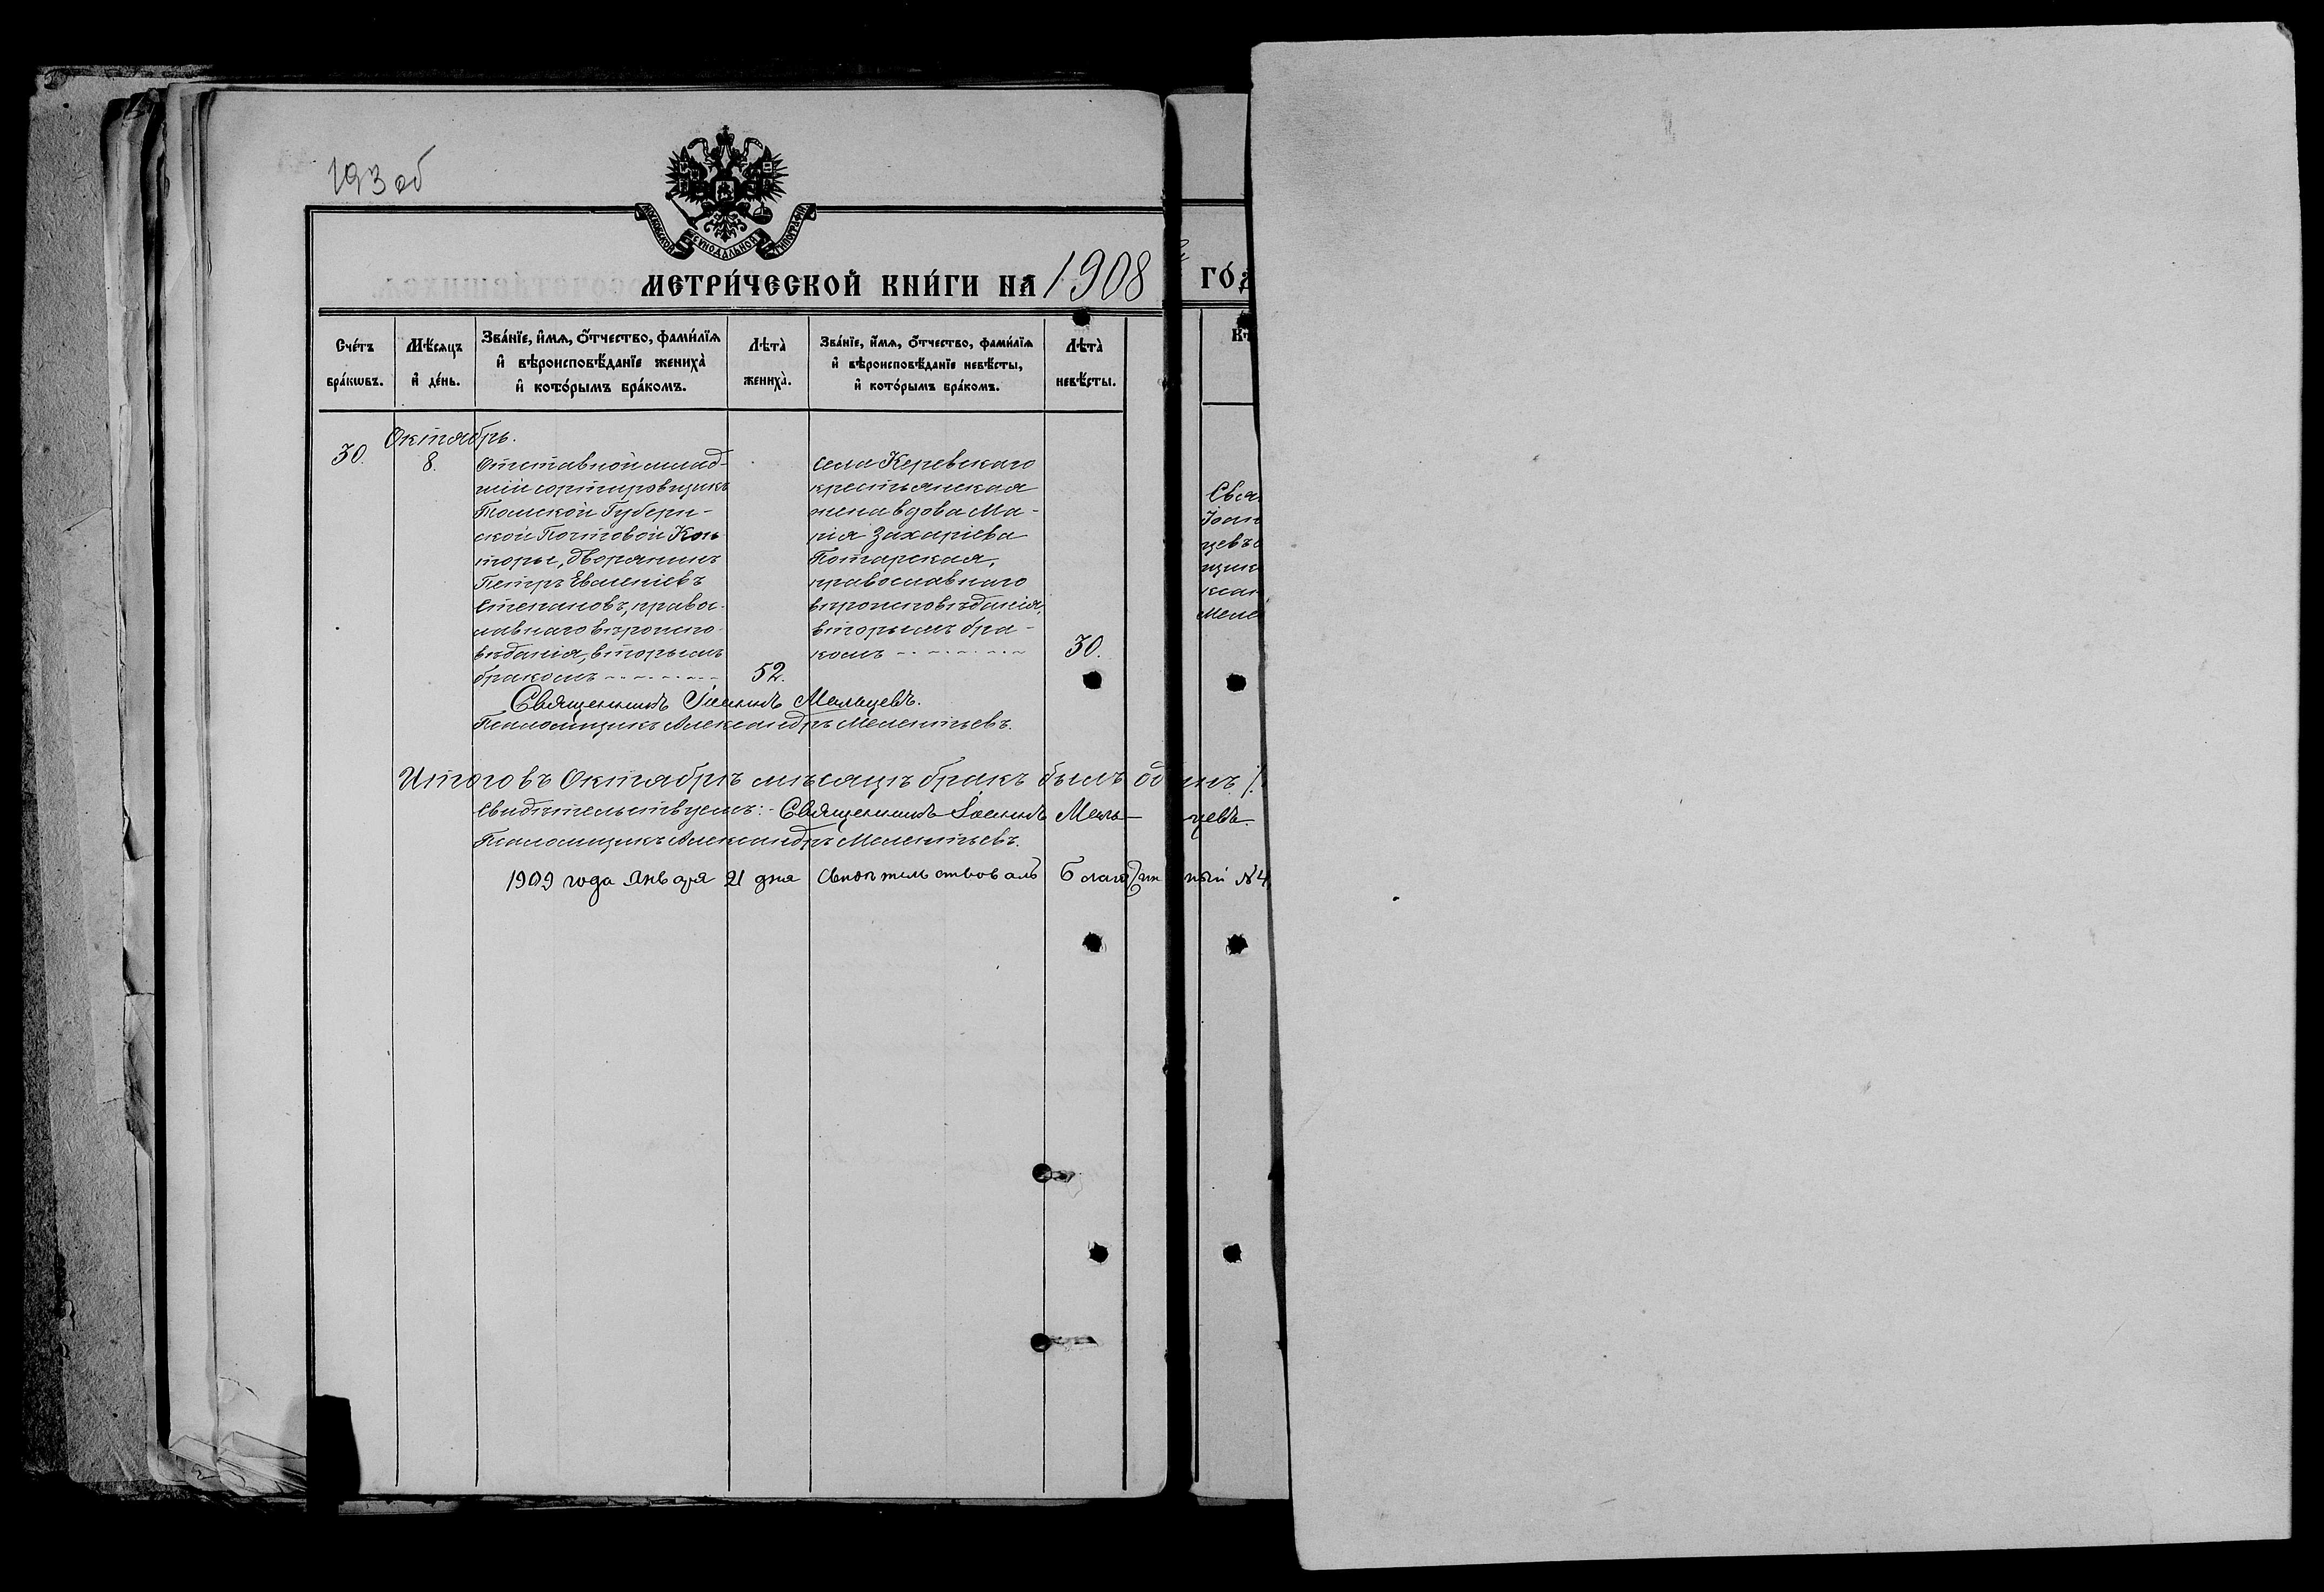 193 об
МОСКОВСКОЙ СѴНОДАЛЬНОЙ ТИПОГРАФІИ
МЕТРИ́ЧЕСКОЙ КНИ́ГИ НА 1908 ГО́Д
Сче́тъ бра́кѡвъ.
Мѣ́сяцъ и҆ де́нь.
Зва́нїе, и҆́мѧ, ѻ҆́тчество, фами́лїѧ и҆ вѣроисповѣ́данїе жениха̀ и҆ кото́рымъ бра́комъ.
Лѣта̀ жениха̀.
Зва́нїе, и҆́мѧ, ѻ҆́тчество, фами́лїѧ и҆ вѣроисповѣ́данїе невѣ́сты, и҆ кото́рымъ бра́комъ.
Лѣта̀ невѣ́сты.
Октябрь.
30.
8.
Отставной млад-
шій сортировщикъ
Томской Губерн-
ской Почтовой Кон
торы, дворянинъ
Петръ Евгеніевъ
Степановъ, правос-
лавнаго вѣроиспо-
вѣданія, вторымъ
бракомъ
52.
Села Керевскаго
крестьянская
жена вдова Ма-
рія Захаріева
Потарская,
православнаго
вѣроисповѣданія,
вторымъ бра-
комъ
30.
Свя
Іоан
цевъ
щик
ксан
Меле
Священникъ Іоаннъ Мальцевъ.
Псаломщикъ Александръ Мелентьевъ.
Итого въ Октябрѣ мѣсяцѣ бракъ былъ одинъ /.
Свидѣтельствуемъ: - Священникъ Іоаннъ Маль-цевъ.
Псаломщикъ Александръ Мелентьевъ.
1909 года Января 21 дня свидѣтельствовалъ Благочинный №4